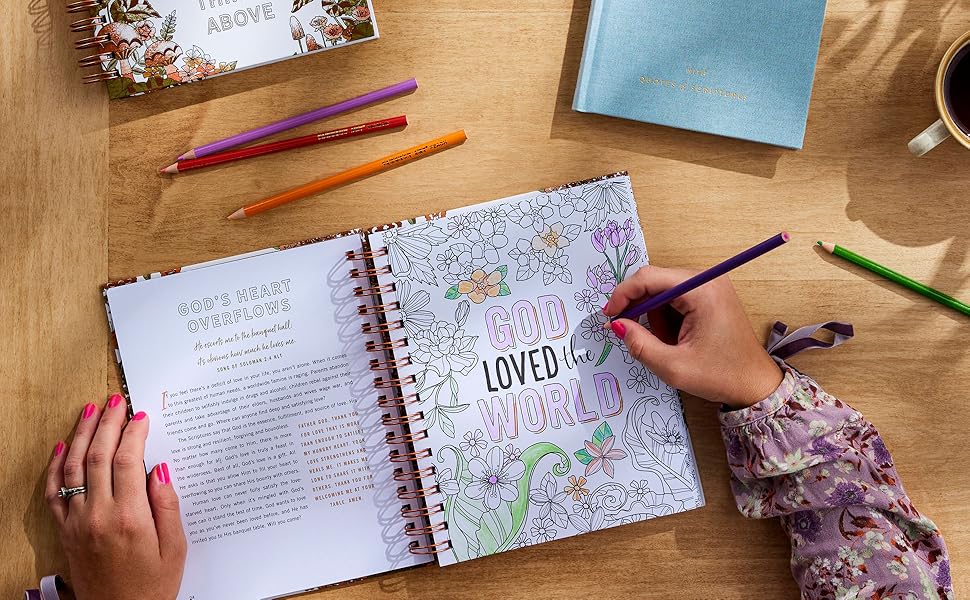 ABOVE
GOD'S HEART
OVERFLOWS
He escorts me to the banquet hall,
it's obvious how much he loves me.
SONG OF SOLOMON 2:4 NLT
If you feel there's a deficit of love in your life, you aren't alone. When it comes
to this greatest of human needs, a worldwide famine is raging. Parents abandon
their children to selfishly indulge in drugs and alcohol, children rebel against their
parents and take advantage of their elders, husbands and wives war, and
friends come and go. Where can anyone find deep and satisfying love?
The Scriptures say that God is the essence, fulfillment, and source of love. His
love is strong and resilient, forgiving and boundless.
No matter how many come to Him, there is more
than enough for all. God's love is truly a feast in
the wilderness. Best of all, God's love is a gift. All
He asks is that you allow Him to fill your heart to
overflowing so you can share His bounty with others.
Human love can never fully satisfy the love-
starved heart. Only when it's mingled with God's
love can it stand the test of time. God wants to love
you as you've never been loved before, and He has
invited you to His banquet table. Will you come?
FATHER GOD, THANK YOU
FOR LOVE THAT IS MORE
THAN ENOUGH TO SATISFY
MY HUNGRY HEART. YOUR
LOVE STRENGTHENS AND
HEALS ME. IT MAKES ME
LONG TO SHARE IT WITH
OTHERS. THANK YOU FOR
WELCOMING ME TO YOUR
TABLE. AMEN.
GOD
LOVED the
WORLD